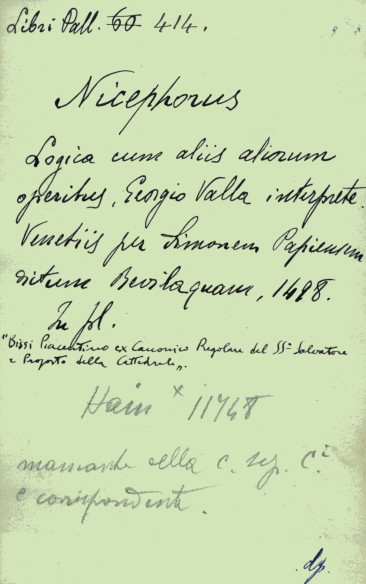 Libri Pall. 60 414.
Nicephorus
Logica cum aliis aliorum
operibus, Georgio Valla interprete.
Venetiis per Simonem Papiensem
dictum Bevilaquam, 1498.
In fol.
"Bissi Piacentino ex Canonico Regolare del SS. Salvatore
e Proposto della Cattedrale".
Hain × 11748
mancante della c. seg.
e corrispondente.
dp.